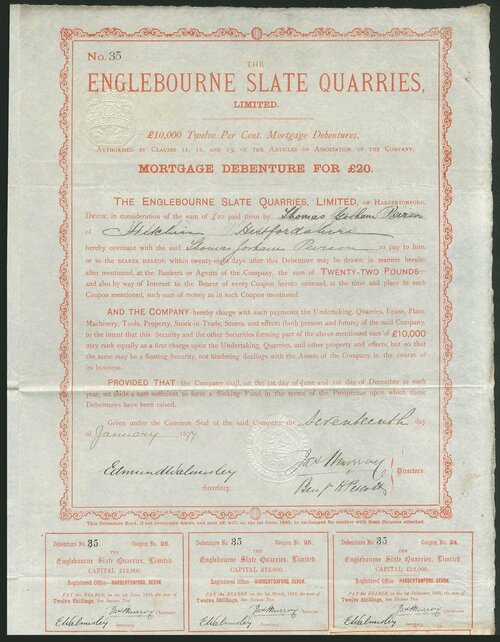 No. 35
THE
ENGLEBOURNE SLATE QUARRIES,
LIMITED.
£10,000 Twelve Per Cent. Mortgage Debentures,
AUTHORISED BY CLAUSES 11, 12, AND 13, OF THE ARTICLES OF ASSOCIATION OF THE COMPANY.
MORTGAGE DEBENTURE FOR £20.
THE ENGLEBOURNE SLATE QUARRIES, LIMITED, OF HARBERTONFORD,
DEVON, in consideration of the sum of £20 paid them by Thomas Pierson
of Hitchin Hertfordshire
hereby covenant with the said Thomas Pierson to pay to him,
or to the BEARER HEREOF, within twenty-eight days after this Debenture may be drawn, in manner herein-
after mentioned, at the Bankers or Agents of the Company, the sum of TWENTY-TWO POUNDS—
and also by way of Interest to the Bearer of every Coupon hereto annexed, at the time and place in such
Coupon mentioned, such sum of money as in such Coupon mentioned.
AND THE COMPANY hereby charge with such payments the Undertaking, Quarries, Lease, Plant,
Machinery, Tools, Property, Stock-in-Trade, Stores, and effects (both present and future) of the said Company,
to the intent that this Security and the other Securities forming part of the above-mentioned sum of £10,000
may rank equally as a first charge upon the Undertaking, Quarries, and other property and effects, but so that
the same may be a floating Security, not hindering dealings with the Assets of the Company in the course of
its business.
PROVIDED THAT this Company shall, on the 1st day of June and 1st day of December in each
year, set aside a sum sufficient to form a Sinking Fund, in the terms of the Prospectus upon which these
Debentures have been raised.
Given under the Common Seal of the said Company the Seventeenth day
of January 1877
Edmund Walmisley
Secretary.
Jas Murray
Benj
Directors.
This Debenture Bond, if not previously drawn and paid off, will, on the 1st June, 1883, be exchanged for another with fresh Coupons attached.
Debenture No. 35 Coupon No. 26.
THE
Englebourne Slate Quarries, Limited.
CAPITAL £12,000.
Registered Office—HARBERTONFORD, DEVON.
PAY the BEARER, on the 1st June, 1883, the sum of
Twelve Shillings, less Income Tax.
Jas Murray Chairman.
E Walmisley Secretary.
Debenture No. 35 Coupon No. 25.
THE
Englebourne Slate Quarries, Limited.
CAPITAL £12,000.
Registered Office—HARBERTONFORD, DEVON.
PAY the BEARER, on the 1st March, 1883, the sum of
Twelve Shillings, less Income Tax.
Jas Murray Chairman.
E Walmisley Secretary.
Debenture No. 35 Coupon No. 24.
THE
Englebourne Slate Quarries, Limited.
CAPITAL £12,000.
Registered Office—HARBERTONFORD, DEVON.
PAY the BEARER, on the 1st December, 1882, the sum of
Twelve Shillings, less Income Tax.
Jas Murray Chairman.
E Walmisley Secretary.